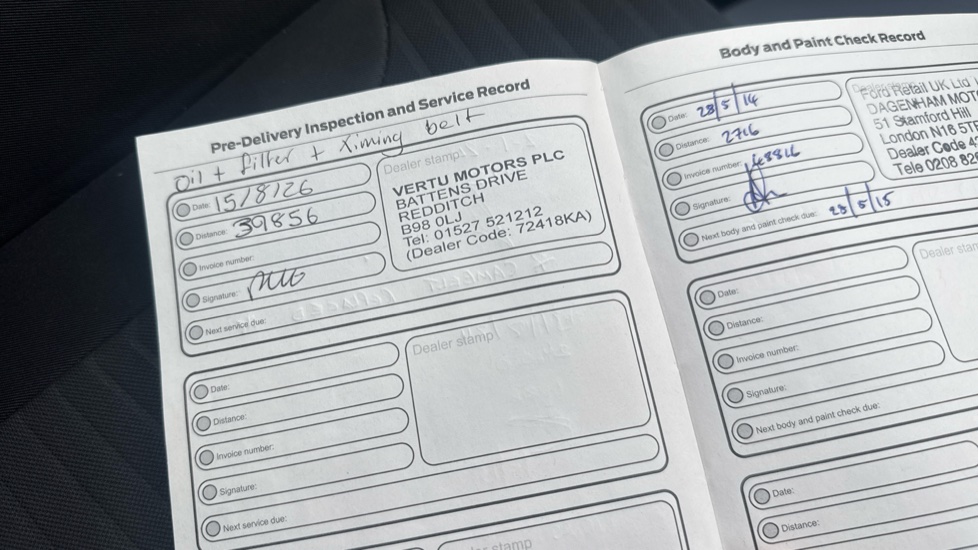 Pre-Delivery Inspection and Service Record
Oil + filter + Timing belt
Date: 15/8/26
Distance: 39856
Invoice number:
Signature:
Next service due:
Dealer stamp
VERTU MOTORS PLC
BATTENS DRIVE
REDDITCH
B98 0LJ
Tel: 01527 521212
(Dealer Code: 72418KA)
Date:
Distance:
Invoice number:
Signature:
Next service due:
Dealer stamp
stamp
Body and Paint Check Record
Date: 28/5/14
Distance: 2716
Invoice number:
Signature:
Next body and paint check due: 28/5/15
Ford Retail UK Ltd
DAGENHAM MOT
51 Stamford Hill
London N16 5T
Dealer Code 4
Tele 0208 82
Date:
Distance:
Invoice number:
Signature:
Next body and paint check due:
Dealer stam
Date:
Distance: